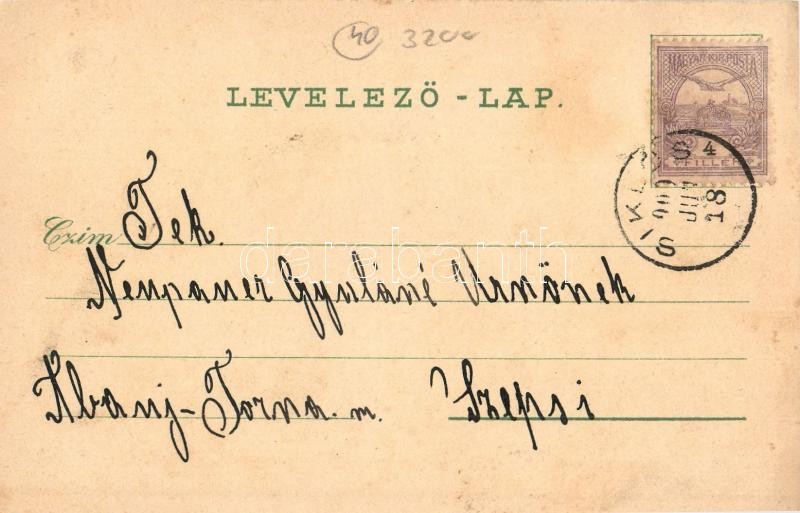 40 3200
LEVELEZŐ - LAP.
MAGYAR KIR. POSTA
4
FILLER
SIKLÓS
900
JUN
18
Czim
Tek.
Neupauer Gyuláné Urnőnek
Abauj-Torna. m. Szepsi
darabanth